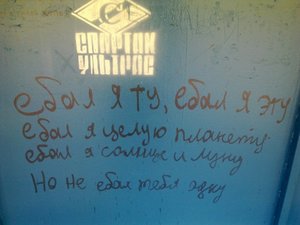 СПАРТАК
УЛЬТРАС
ебал я ту, ебал я эту
ебал я целую планету
ебал я солнце и луну
Но не ебал тебя одну